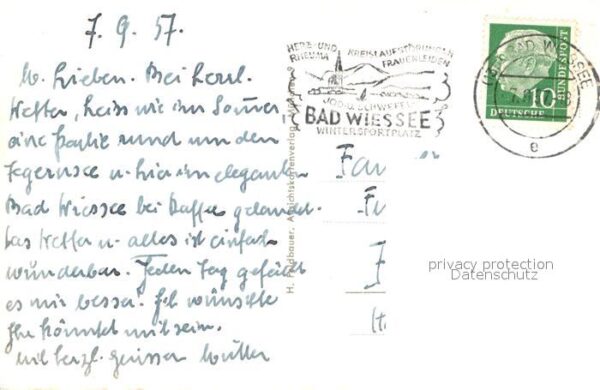 7.9.57.
M. Lieben. Bei herrl.
Wetter, heiss wie im Sommer,
eine Partie rund um den
Tegernsee u. hier im eleganten
Bad Wiessee bei Kaffee gelandet.
Das Wetter u. alles ist einfach
wunderbar. Jeden Tag gefällt
es mir besser! Ich wünschte
Ihr könntet mit sein.
mit herzl. Grüssen
HERZ- UND
RHEUMA
KREISLAUFSTÖRUNGEN
FRAUENLEIDEN
JOD- U. SCHWEFEL
BAD WIESSEE
WINTERSPORTPLATZ
BAD WIESSEE
e
10
DEUTSCHE
BUNDESPOST
H. Feldbauer, Ansichtskartenverlag
Fam
F
H
privacy protection
Datenschutz